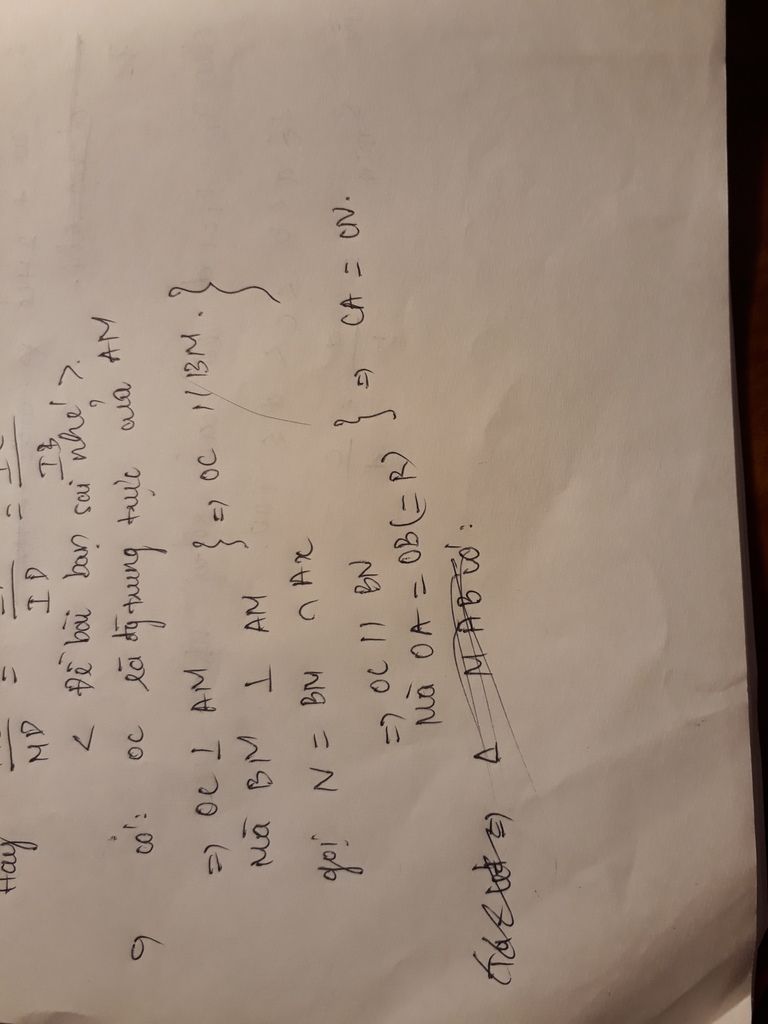 Hay MD = ID = IB
< Đề bài bạn sai nhé >.
c) có: OC là đg trung trực của AM
=> OC ⊥ AM
Mà BM ⊥ AM } => OC // BM. }
gọi N = BM ∩ Ax
=> OC // BN
Mà OA = OB (= R) } => CA = CN.
Δ MAB có: